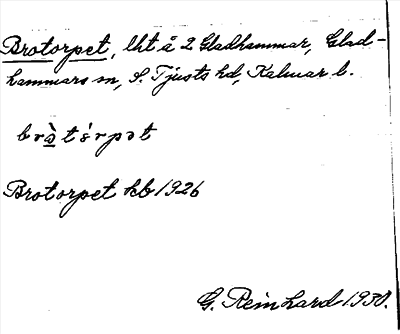 Brotorpet, lht å 2 Gladhammar, Glad-
hammars sn, S. Tjusts hd, Kalmar l.
bròtórpət
Brotorpet kb 1926
G. Reinhard 1930.